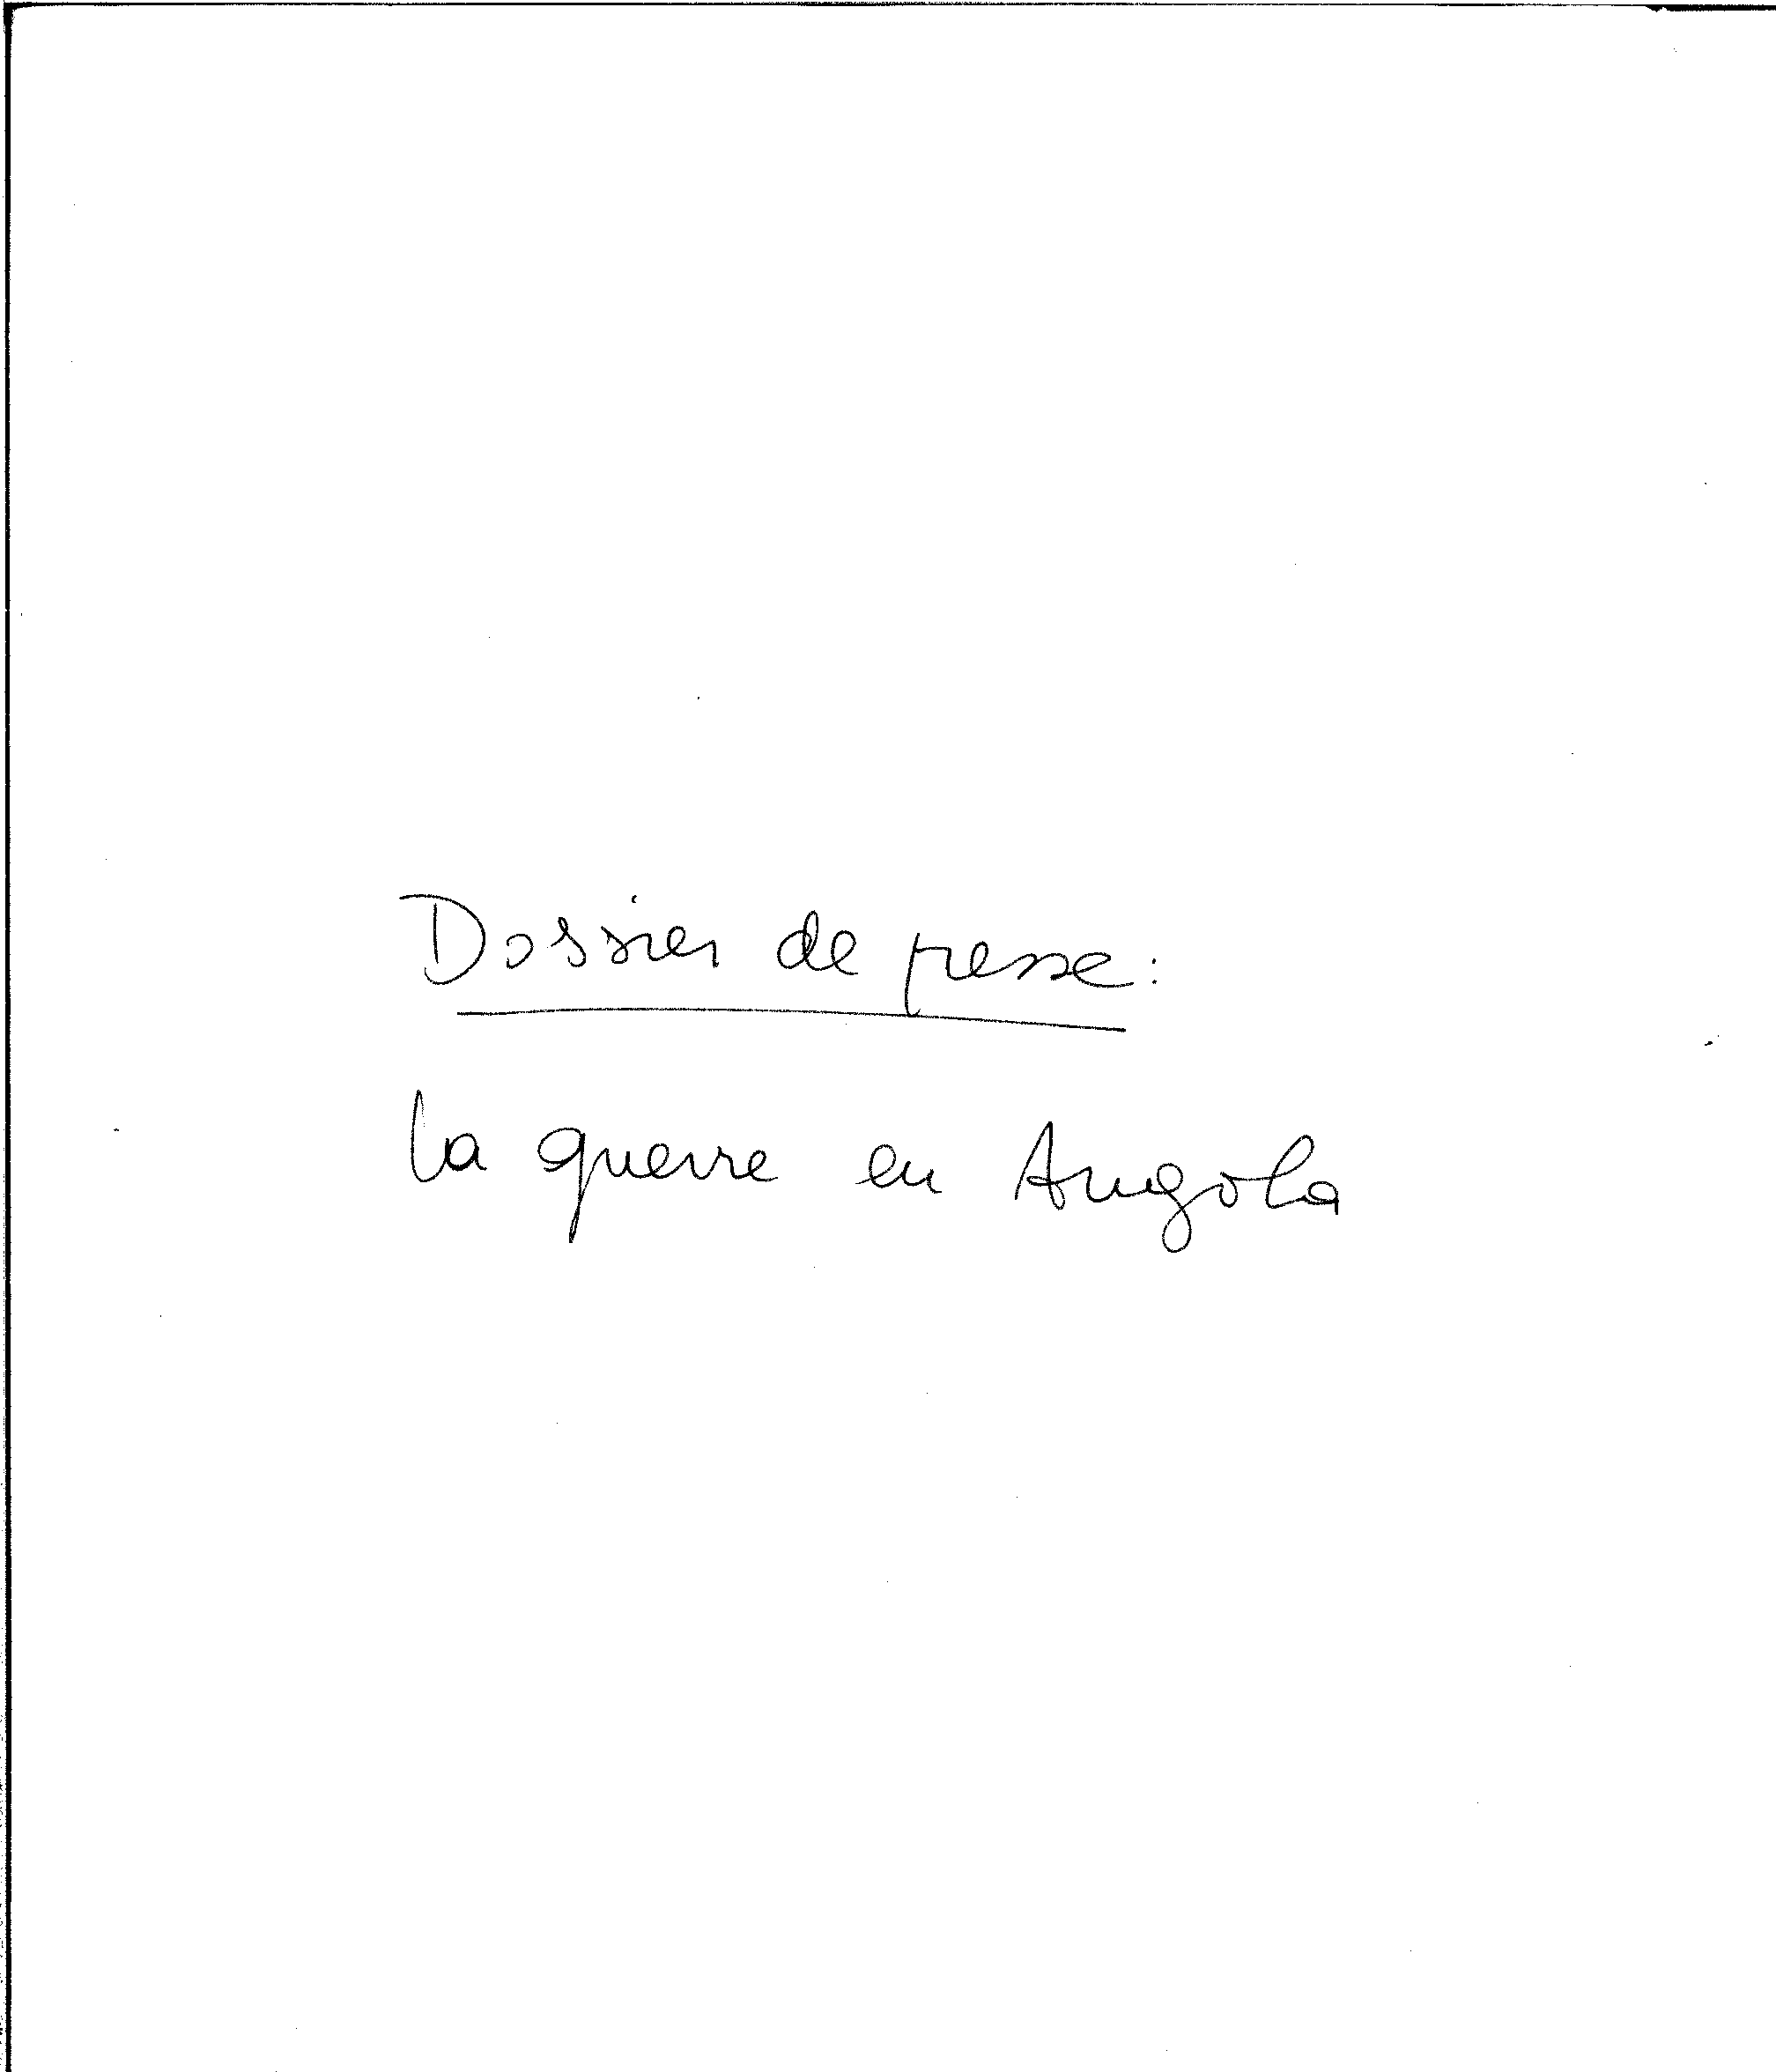 Dossier de presse:
la guerre en Angola